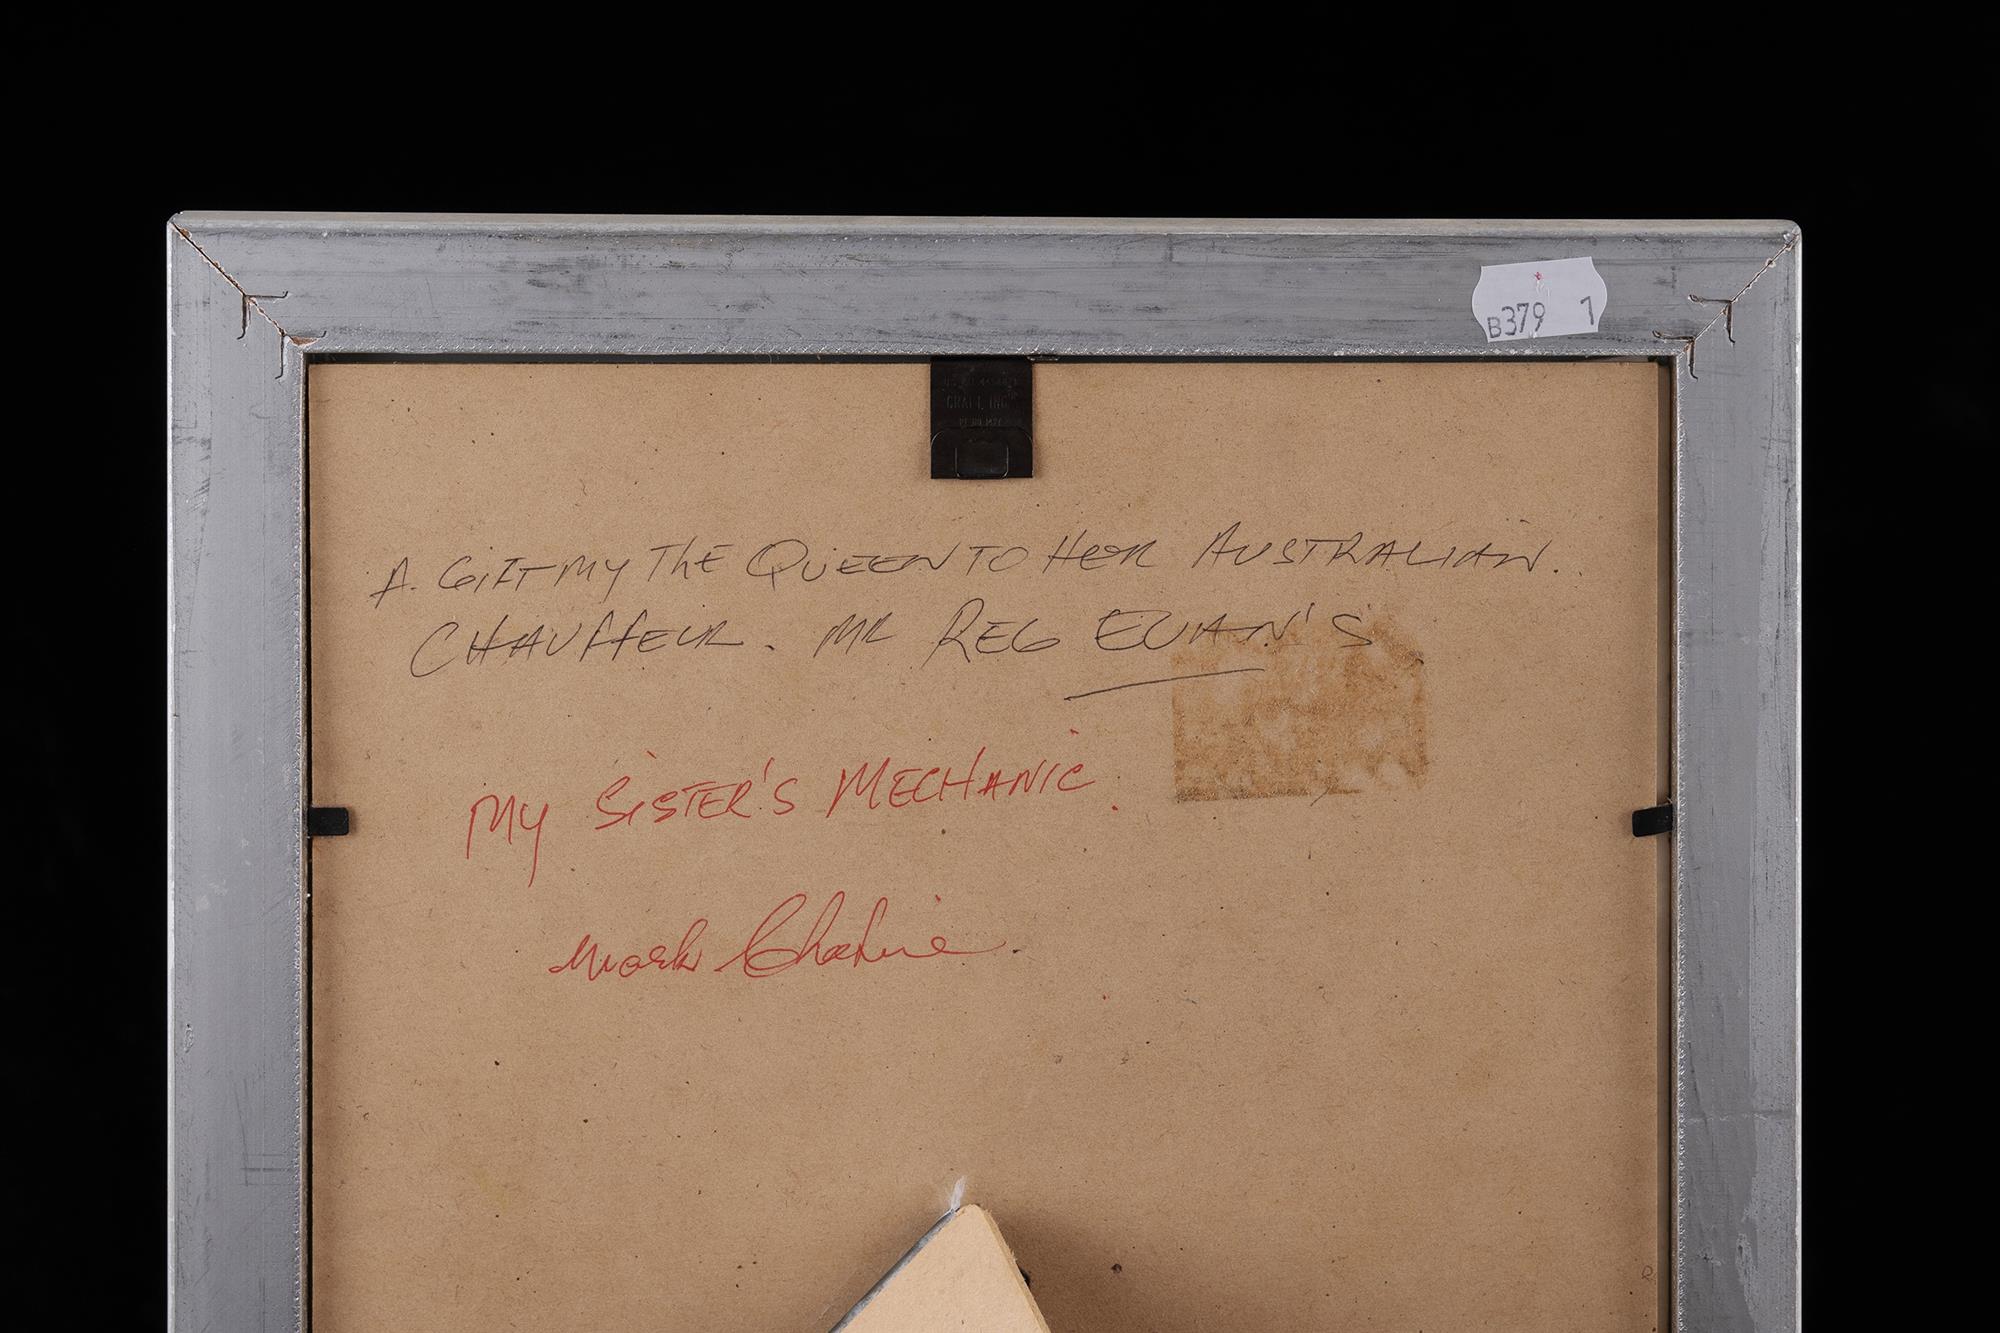 B379 1
CRAFT, INC
A. GIFT MY THE QUEEN TO HER AUSTRALIAN.
CHAUFFEUR. MR REG EVAN'S
MY SISTER'S MECHANIC.
Mark